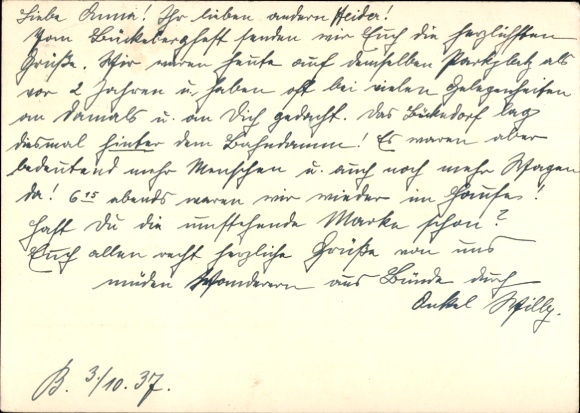 Liebe Anna! Ihr lieben andern Heider!
Vom Bückebergfest senden wir Euch die herzlichsten
Grüße. Wir waren heute auf demselben Parkplatz als
vor 2 Jahren u. haben oft bei vielen Gelegenheiten
an damals u. an Dich gedacht. Das Bückedorf lag
diesmal hinter dem Bahndamm! Es waren aber
bedeutend mehr Menschen u. auch noch mehr Wagen
da! 6 15 abends waren wir wieder im Hause!
Hast Du die umstehende Marke schon?
Euch allen recht herzliche Grüße von uns
müden Wanderern aus Bünde durch
Onkel Willy.
B. 3/10. 37.